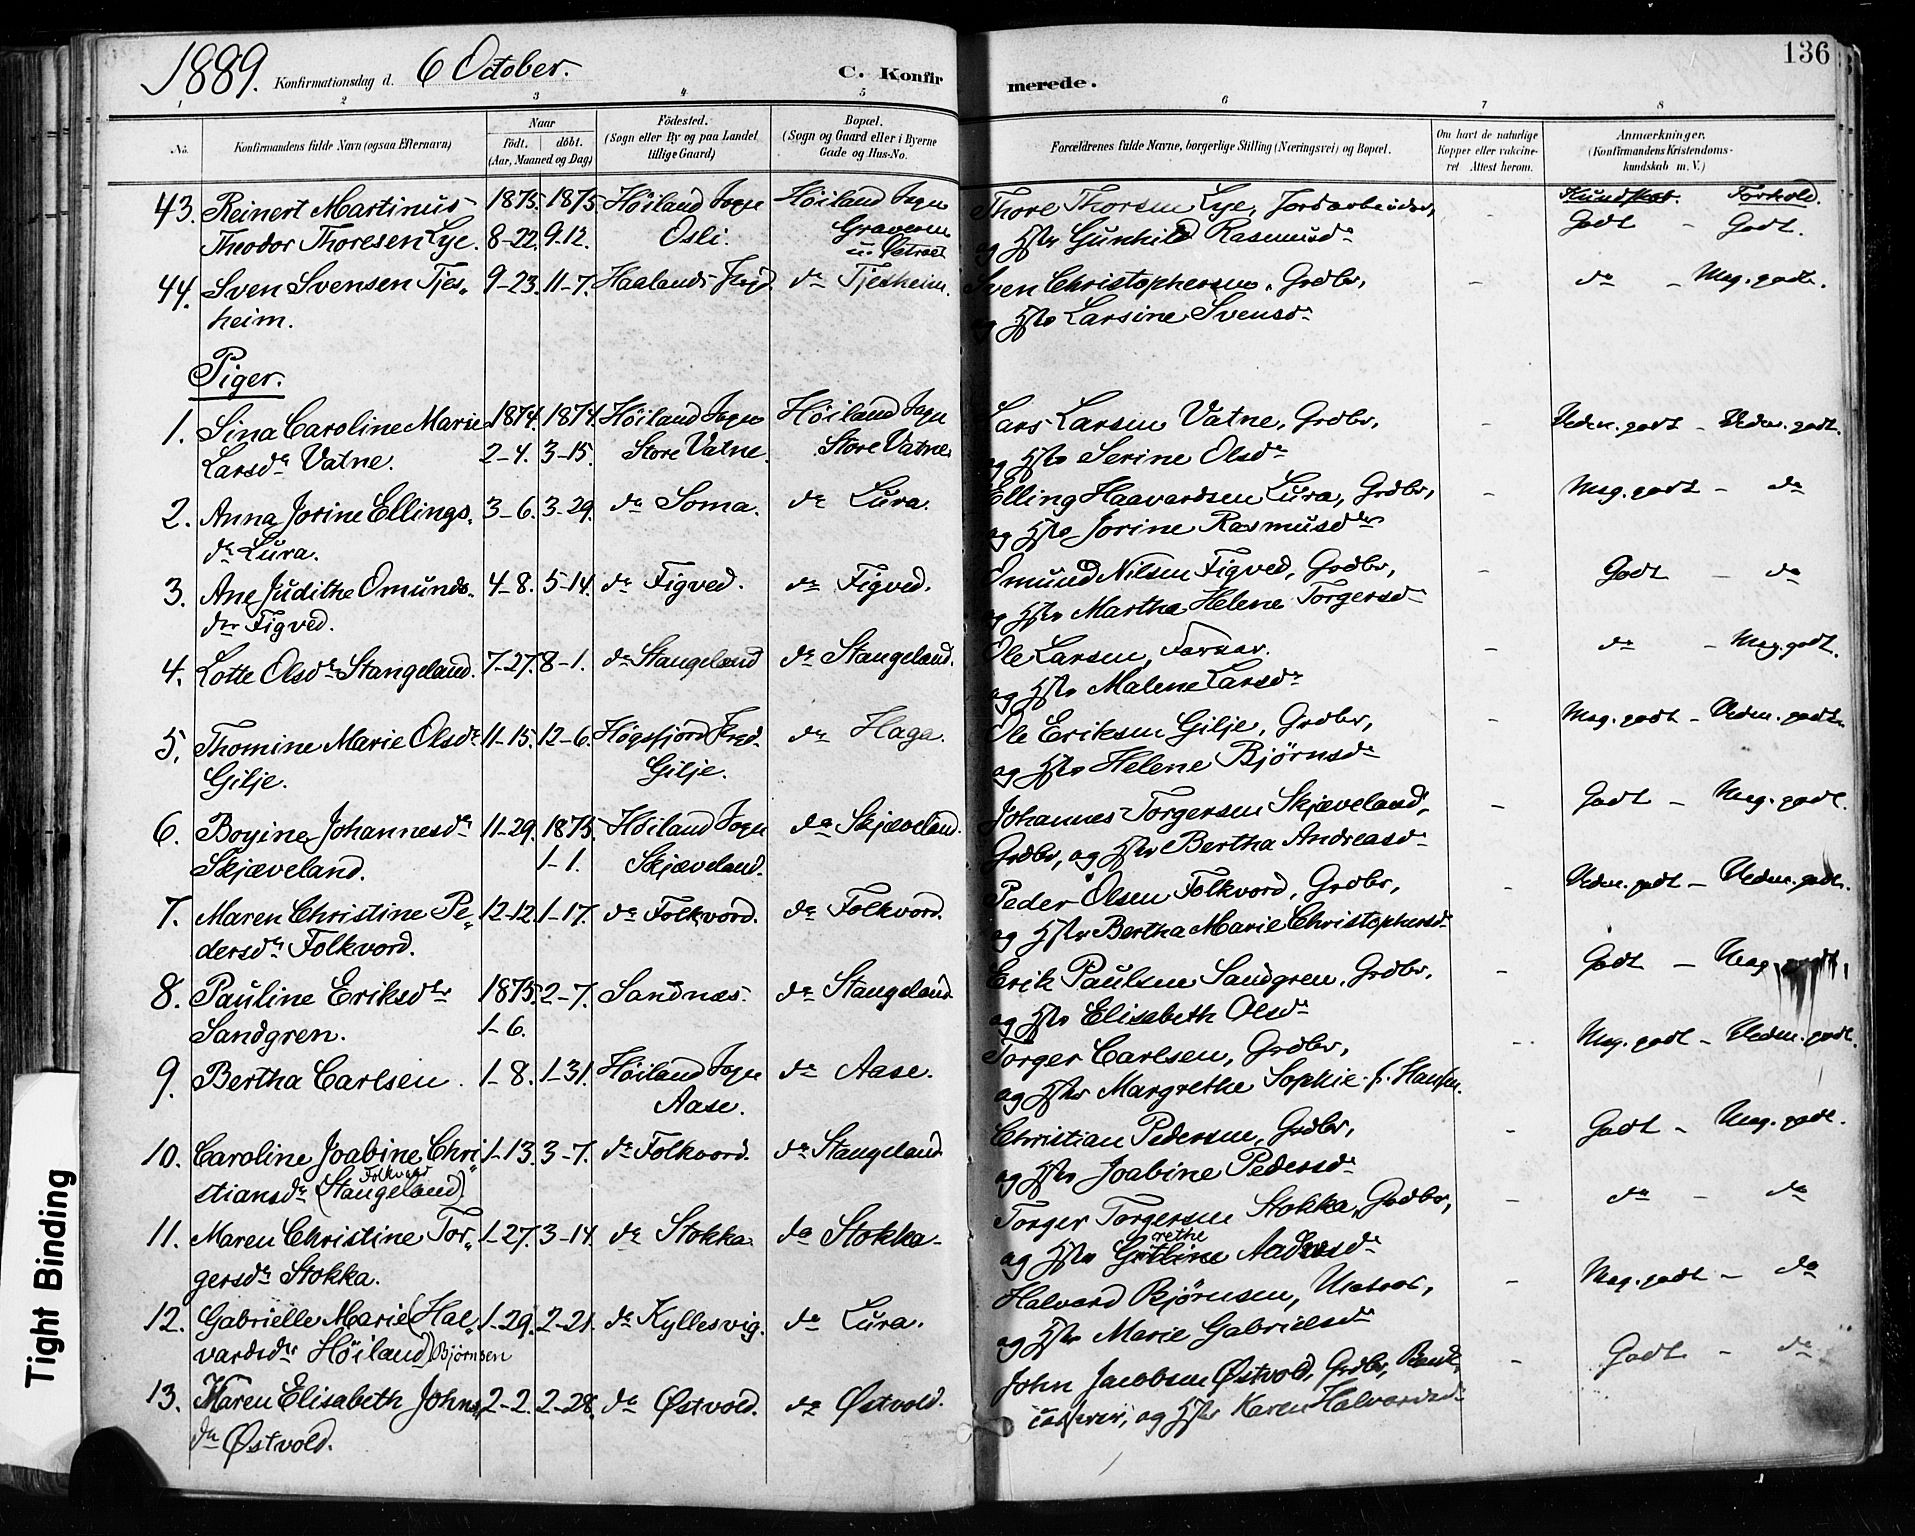 136
1889. Konfirmationsdag d. 6 October. C. Konfirmerede.
1 2 3 4 5 6 7 8
No. Konfirmandens fulde Navn (ogsaa Efternavn) Naar født. døbt. (Aar, Maaned og Dag) Fødested. (Sogn eller By og paa Landet tillige Gaard) Bopæl. (Sogn og Gaard eller i Byerne Gade og Hus-No. Forældrenes fulde Navne, borgerlige Stilling (Næringsvei) og Bopæl. Om havt de naturlige Kopper eller vakcineret Attest herom. Anmærkninger. (Konfirmandens Kristendomskundskab m. V.)
Kundskab. Forhold.
43. Reinert Martinus 1875. 1875. Høiland Sogn Høiland Sogn Thore Thorsen Lye, Jordarbeider, - Godt - Godt.
Theodor Thoresen Lye. 8-22. 9-12. Osli. Graveren og Hstr Gunhild Rasmusdr
44. Sven Svensen Tjes- 9-23. 11-7. Haalands Prgjd do Tjesheim. Sven Christophersen, Grdbr, - do - Meg. godt.
heim. og Hstr Larsine Svensdr
Piger.
1. Sina Caroline Marie 1874. 1874. Høiland Sogn Høiland Sogn Lars Larsen Vatne, Grdbr, Udm. godt - Udm. godt.
Larsdr Vatne. 2-4. 3-15. Store Vatne. Store Vatne. og Hstr Serine Olsdr
2. Anna Jorine Ellings- 3-6. 3-29. do Soma. do Lura. Elling Haavardsen Lura, Grdbr, - Meg. godt - do
dr Lura. og Hstr Jorine Rasmusdtr
3. Ane Judithe Omunds- 4-8. 5-14. do Figved. do Figved. Omund Nilsen Figved, Grdbr, - Godt - do
dtr Figved. og Hstr Martha Helene Torgersdr
4. Lotte Olsdr Stangeland. 7-27. 8-1. do Stangeland do Stangeland. Ole Larsen, Farver. - do - Meg. godt.
og Hstr Malene Larsdr
5. Thomine Marie Olsdr 11-15. 12-6. Høgsfjord Prgd. do Haga. Ole Eriksen Gilje, Grdbr, - Meg. godt - Udm. godt.
Gilje. Gilje. og Hstr Helene Bjørnsdr
6. Boyine Johannesdr 11-29. 1875. Høiland Sogn do Skjæveland. Johannes Torgersen Skjæveland, - Godt - Meg. godt.
Skjæveland. 1-1. Skjæveland. Grdbr, og Hstr Bertha Andreasdr
7. Maren Christine Pe- 12-12. 1-17. do Folkvord. do Folkvord. Peder Olsen Folkvord, Grdbr, - Udm. godt - Udm. godt.
dersdr Folkvord. og Hstr Bertha Marie Christophersdr
8. Pauline Eriksdtr 1875. 2-7. Sandnæs. do Stangeland Erik Paulsen Sandgren, Grdbr, - Godt - Meg. godt.
Sandgren. 1-6. og Hstr Elisabeth Olsdr
9. Bertha Carlsen. 1-8. 1-31. Høiland Sogn do Aase. Torger Carlsen, Grdbr, - Meg. godt - Udm. godt.
Aase. og Hstr Margrethe Sophie f. Hansen.
10. Caroline Joabine Chri- 1-13. 3-7. do Folkvord. do Stangeland Christian Pedersen, Grdbr, - Godt - Meg. godt.
stiansdr (Stangeland) Folkvord og Hstr Joabine Pedersdr
11. Maren Christine Tor- 1-27. 3-14. do Stokka. do Stokka. Torger Torgersen Stokka, Grdbr, - do - do
gersdr Stokka. og Hstr rethe
12. Gabrielle Marie (Hal- 1-29. 2-21. do Kyllesvig. do Lura. Halvard Bjørnsen, - Meg. godt - do
vardsdtr Høiland) Bjørnsen og Hstr Marie Gabrielsdr
13. Karen Elisabeth Johns- 2-2. 2-28. do Østvold. do Østvold. John Jacobsen Østvold, Grdbr, Bank- - Godt - do
dr Østvold. casserer, og Hstr Karen Halvardsdr
Tight Binding